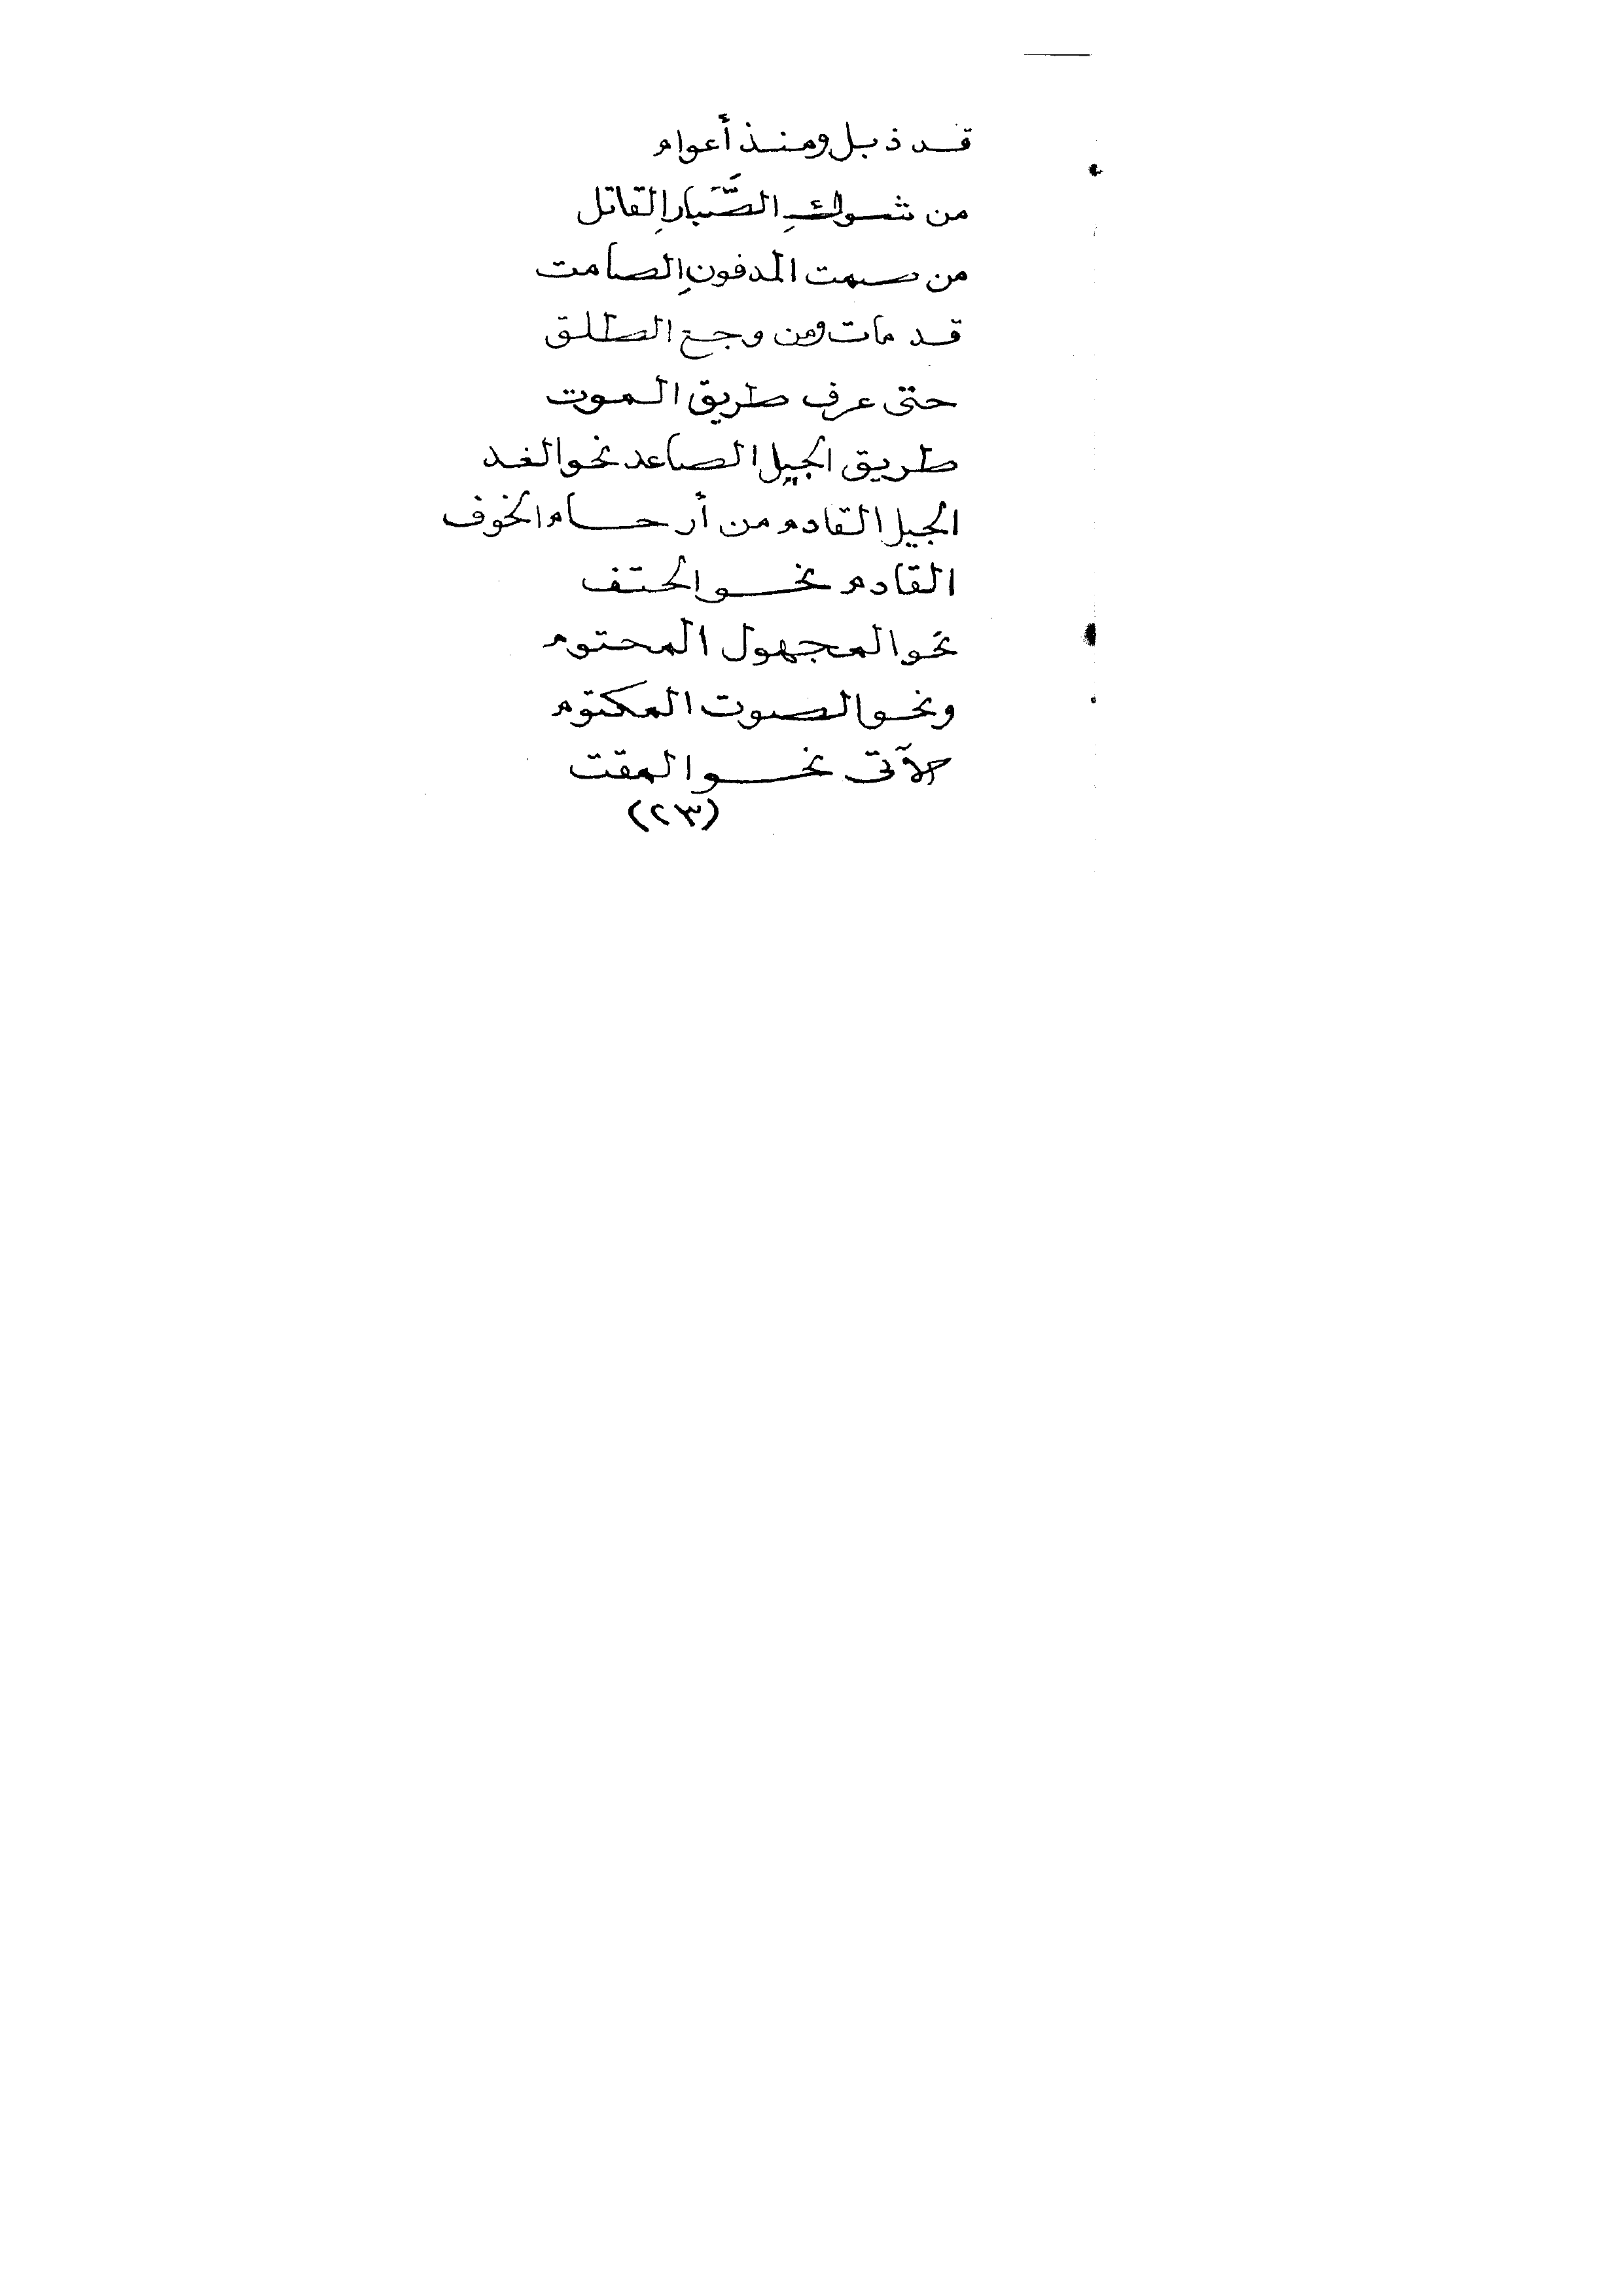 قد ذبل ومنذ أعوام
من شوكِ الصَّبَارِ القاتل
من صمت المدفونِ الصامت
قد مات ومن وجع الطلق
حتى عرف طريق الموت
طريق الجيل الصاعد نحو الغد
الجيل القادم من أرحام الخوف
القادم نحو الحتف
نحو المجهول المحتوم
ونحو الصوت المكتوم
الآتى نحو المقت
(٢٣)